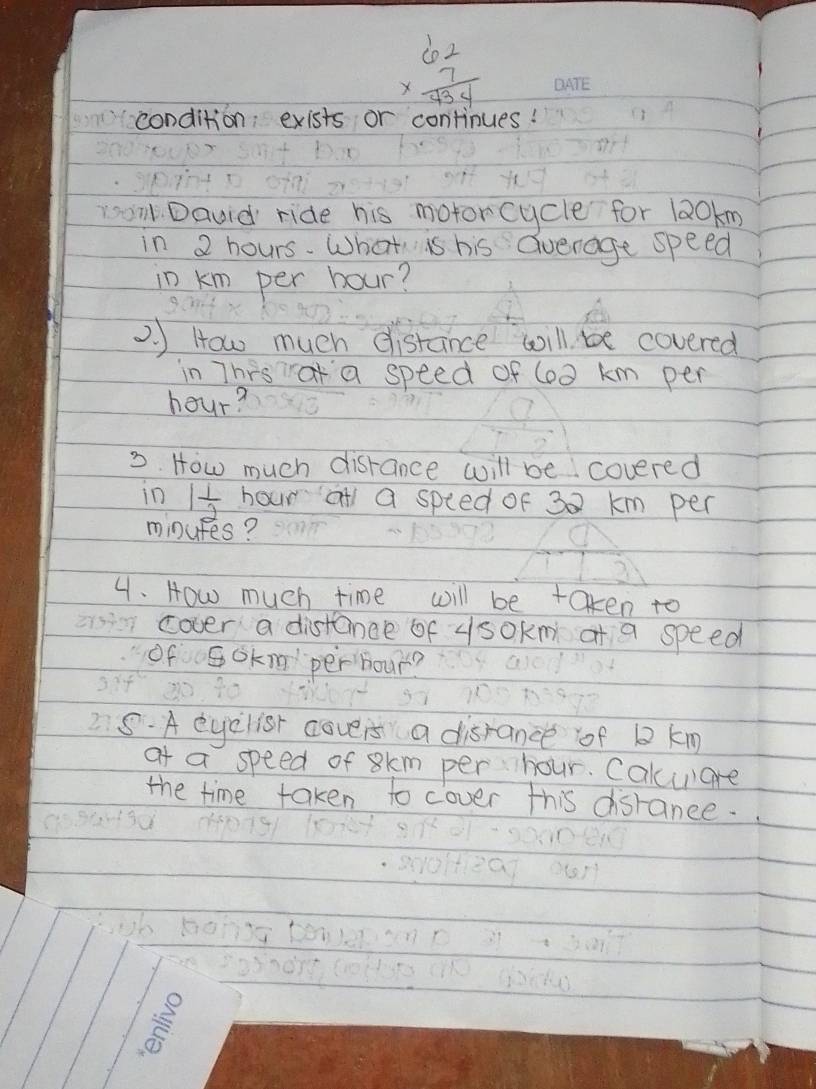 62
× 7
434
DATE
condition exists or continues.
1. David ride his motorcycle for 120km
in 2 hours. What is his average speed
in km per hour?
2.) How much distance will be covered
in 7hrs at a speed of 62 km per
hour?
3. How much distance will be covered
in 1 1/2 hour at a speed of 32 km per
minutes?
4. How much time will be taken to
cover a distance of 450km at a speed
of 50km per hour?
5. A cyclist covers a distance of 12 km
at a speed of 8km per hour. Calculate
the time taken to cover this distance.
*enlivo